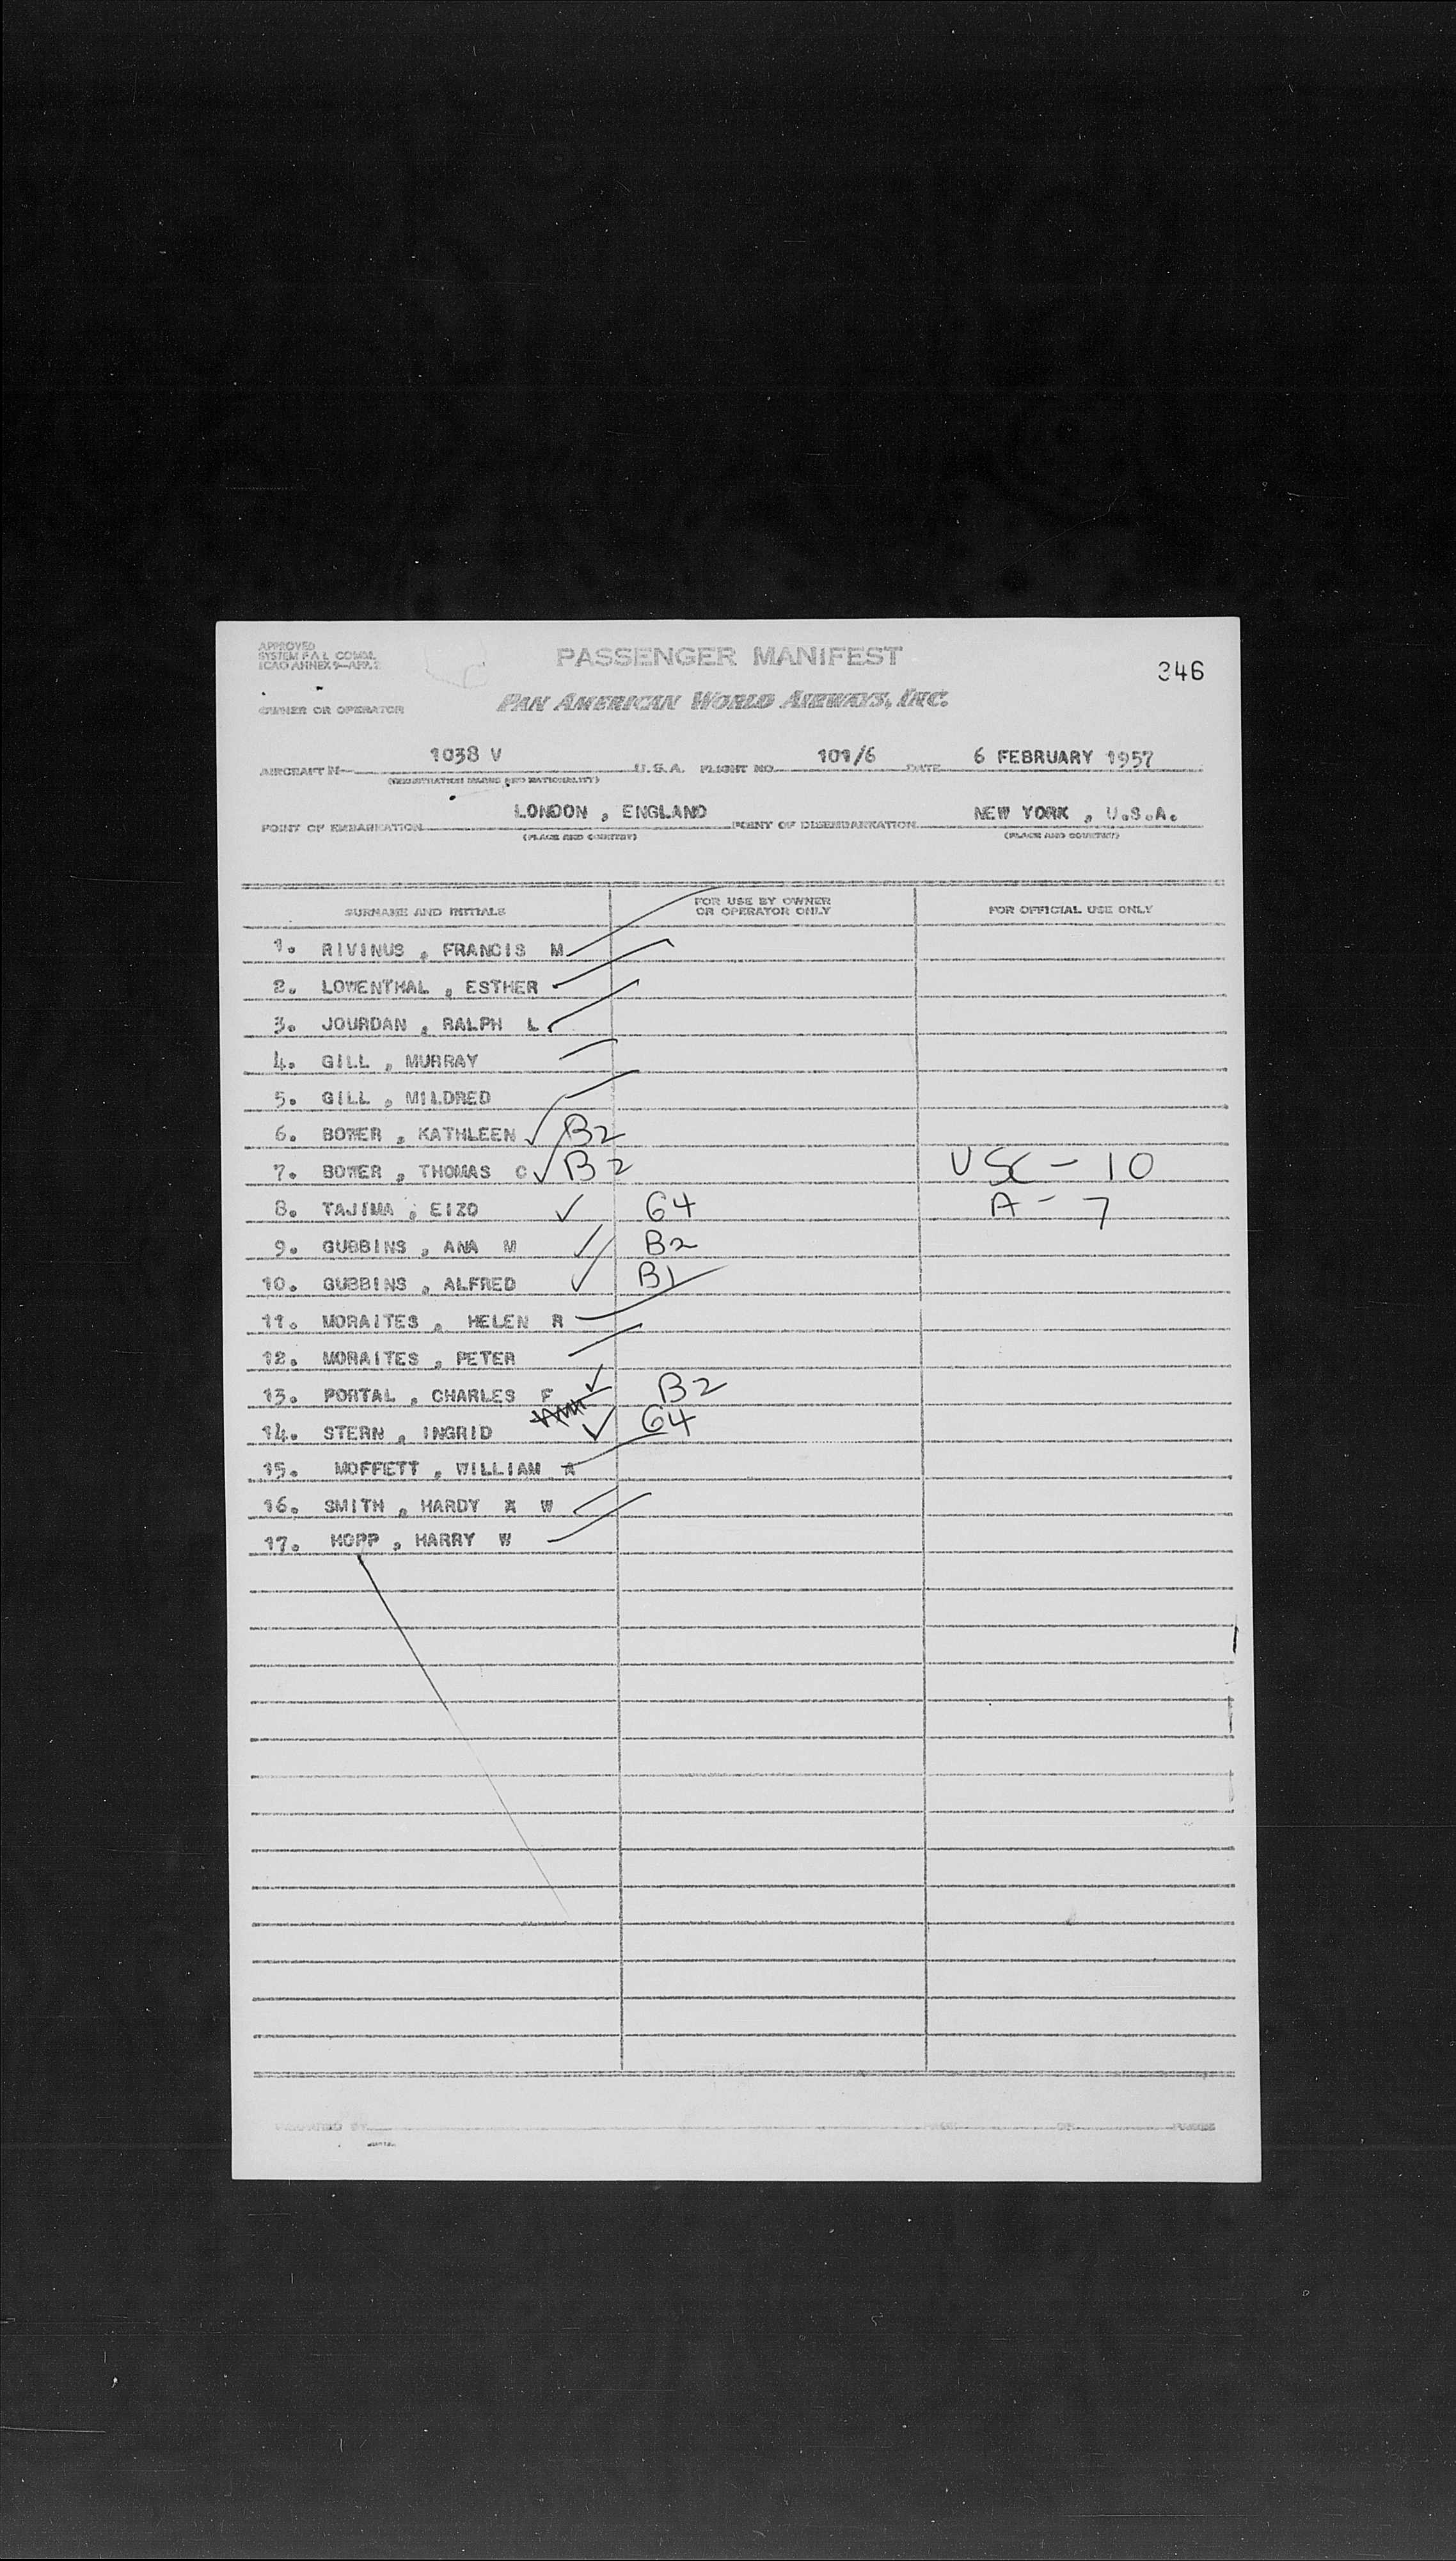 APPROVED
SYSTEM F A L COMM.
ICAO ANNEX 9—APP. 2
PASSENGER MANIFEST
346
OWNER OR OPERATOR
PAN AMERICAN WORLD AIRWAYS, INC.
AIRCRAFT N- 1038 V U.S.A. FLIGHT NO. 101/6 DATE 6 FEBRUARY 1957
(REGISTRATION MARKS AND NATIONALITY)
POINT OF EMBARKATION LONDON , ENGLAND POINT OF DISEMBARKATION NEW YORK , U.S.A.
(PLACE AND COUNTRY) (PLACE AND COUNTRY)
SURNAME AND INITIALS FOR USE BY OWNER OR OPERATOR ONLY FOR OFFICIAL USE ONLY
1. RIVINUS , FRANCIS M
2. LOWENTHAL , ESTHER
3. JOURDAN , RALPH L
4. GILL , MURRAY
5. GILL , MILDRED
6. BOWER , KATHLEEN ✓ B2
7. BOWER , THOMAS C ✓ B2 USC - 10
8. TAJIMA , EIZO ✓ G4 A - 7
9. GUBBINS , ANA M ✓ B2
10. GUBBINS , ALFRED ✓ B1
11. MORAITES , HELEN R
12. MORAITES , PETER
13. PORTAL , CHARLES F ✓ B2
14. STERN , INGRID ✓ G4
15. MOFFETT , WILLIAM A
16. SMITH , HARDY A W
17. HOPP , HARRY W
PREPARED BY PAGE OF PAGES